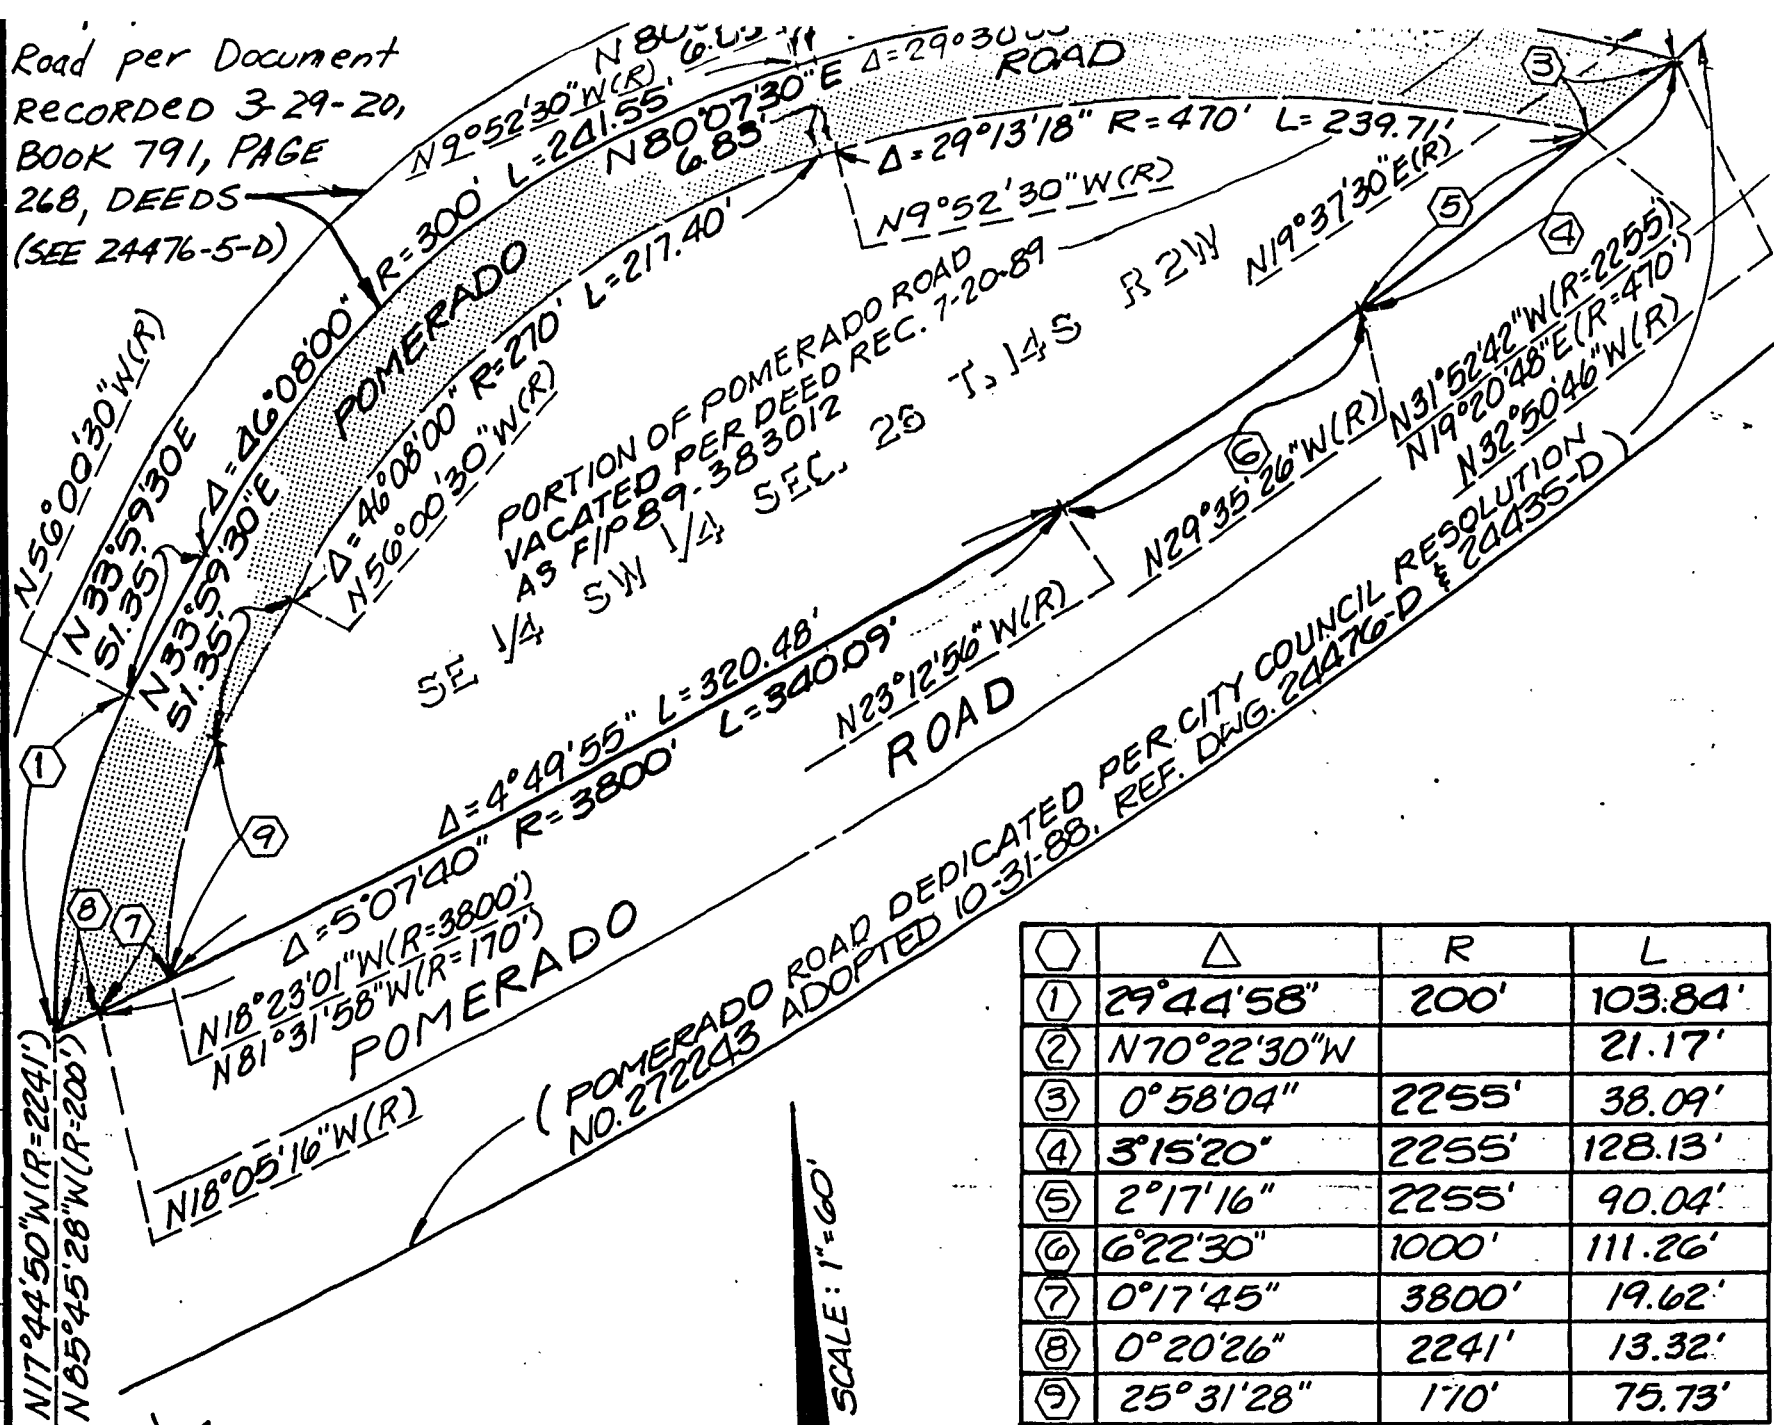 Road per Document
RECORDED 3-29-20,
BOOK 791, PAGE
268, DEEDS
(SEE 24476-5-D)
N9°52'30"W(R)
R=300' L=241.55'
N80°07'30"E
6.83'
Δ=29°30'00"
ROAD
Δ=29°13'18" R=470' L=239.71'
N9°52'30"W(R)
N19°37'30"E(R)
3
5
4
POMERADO
Δ=46°08'00"
Δ=46°08'00" R=270' L=217.40'
N56°00'30"W(R)
N56°00'30"W(R)
N33°59'30E
51.35'
N33°59'30"E
51.35'
PORTION OF POMERADO ROAD
VACATED PER DEED REC. 7-20-89
AS F/P 89-383012
SE 1/4 SW 1/4 SEC. 25 T.14S R2W
N31°52'42"W(R=2255')
N19°20'48"E(R=470')
N32°50'46"W(R)
6
N29°35'26"W(R)
N23°12'56"W(R)
Δ=4°49'55" L=320.48'
Δ=5°07'40" R=3800' L=340.09'
1
9
8
7
N18°23'01"W(R=3800')
N81°31'58"W(R=170')
POMERADO ROAD
N18°05'16"W(R)
N17°44'50"W(R=2241')
N85°45'28"W(R=200')
(POMERADO ROAD DEDICATED PER CITY COUNCIL RESOLUTION
NO. 272243 ADOPTED 10-31-88, REF. DWG. 24476-D & 24435-D)
SCALE: 1"=60'
Δ R L
1 29°44'58" 200' 103.84'
2 N70°22'30"W 21.17'
3 0°58'04" 2255' 38.09'
4 3°15'20" 2255' 128.13'
5 2°17'16" 2255' 90.04'
6 6°22'30" 1000' 111.26'
7 0°17'45" 3800' 19.62'
8 0°20'26" 2241' 13.32'
9 25°31'28" 170' 75.73'